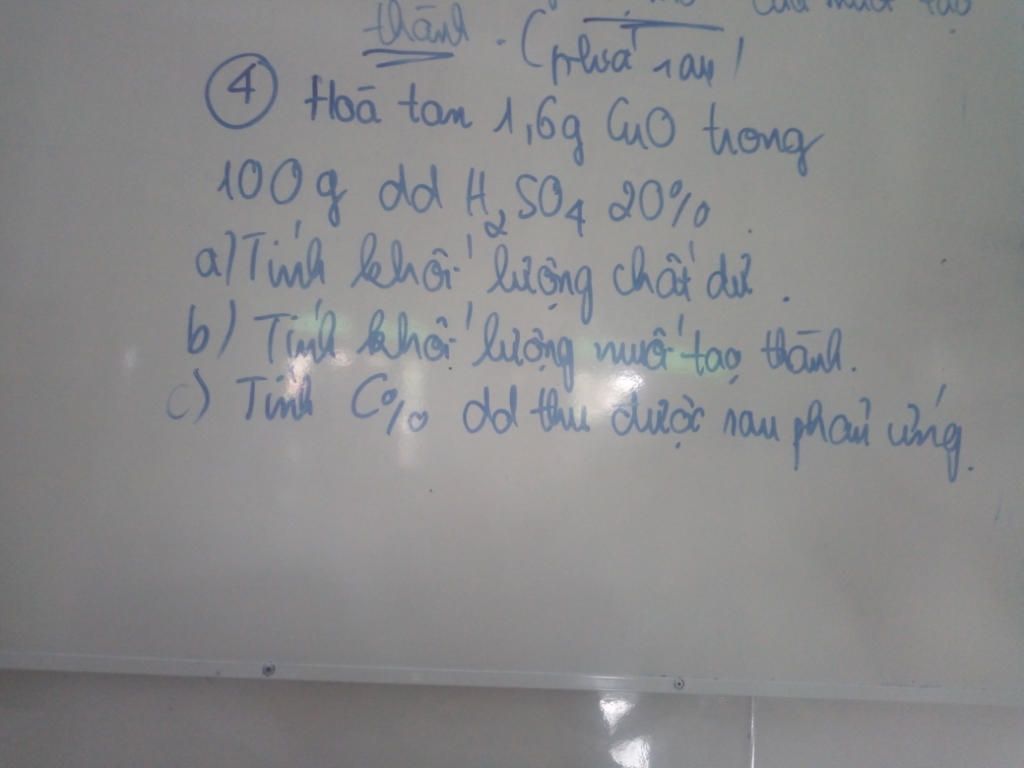 thành. (phía sau)
④ Hoà tan 1,6g CuO trong
100g dd H₂SO₄ 20%
a) Tính khối lượng chất dư.
b) Tính khối lượng muối tạo thành.
c) Tính C% dd thu được sau phản ứng.